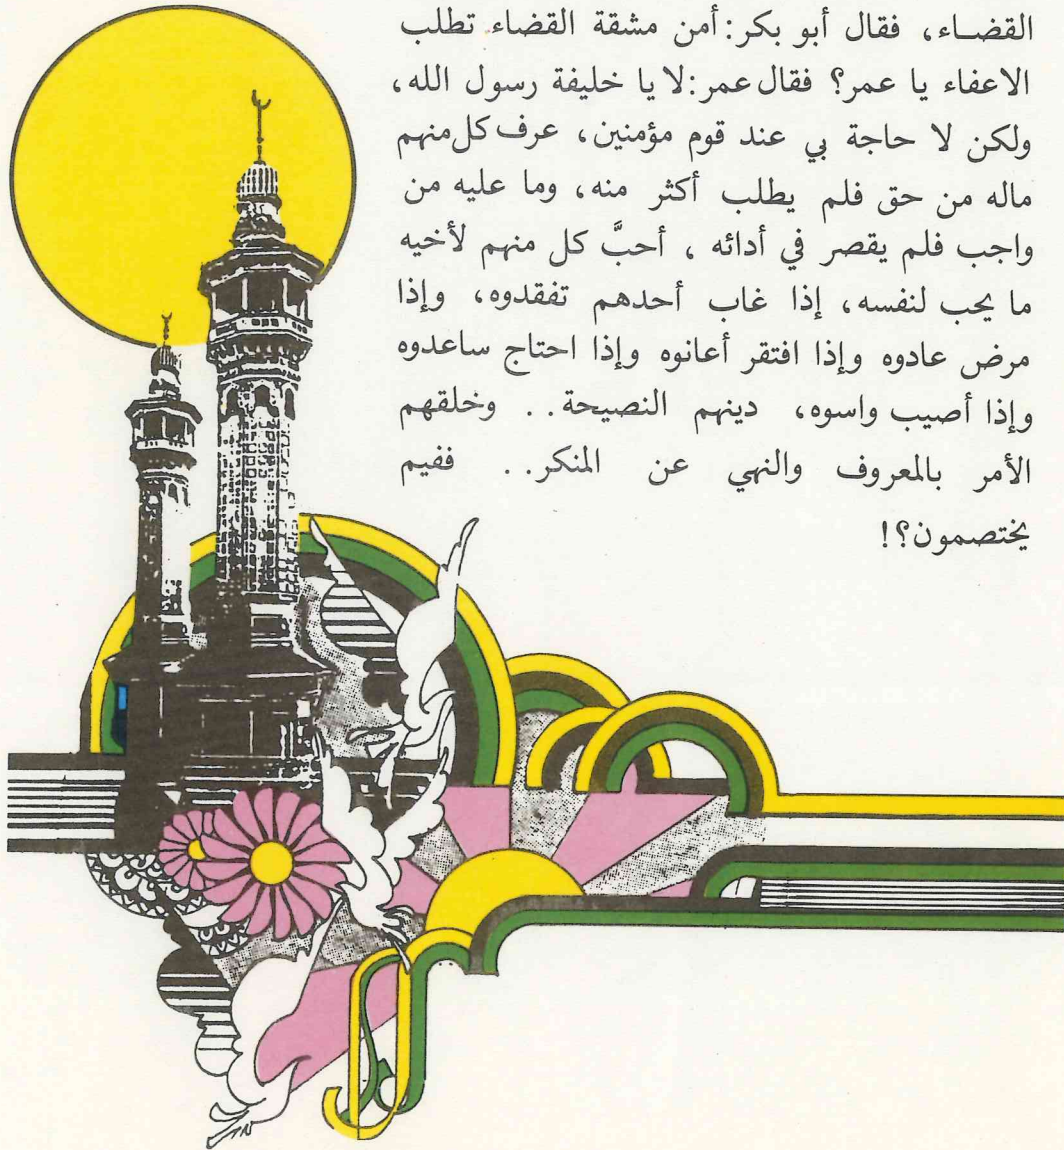 القضاء، فقال أبو بكر: أمن مشقة القضاء تطلب
الاعفاء يا عمر؟ فقال عمر: لا يا خليفة رسول الله،
ولكن لا حاجة بي عند قوم مؤمنين، عرف كل منهم
ماله من حق فلم يطلب أكثر منه، وما عليه من
واجب فلم يقصر في أدائه ، أحبَّ كل منهم لأخيه
ما يحب لنفسه، إذا غاب أحدهم تفقدوه، وإذا
مرض عادوه وإذا افتقر أعانوه وإذا احتاج ساعدوه
وإذا أصيب واسوه، دينهم النصيحة.. وخلقهم
الأمر بالمعروف والنهي عن المنكر.. ففيم
يختصمون؟!